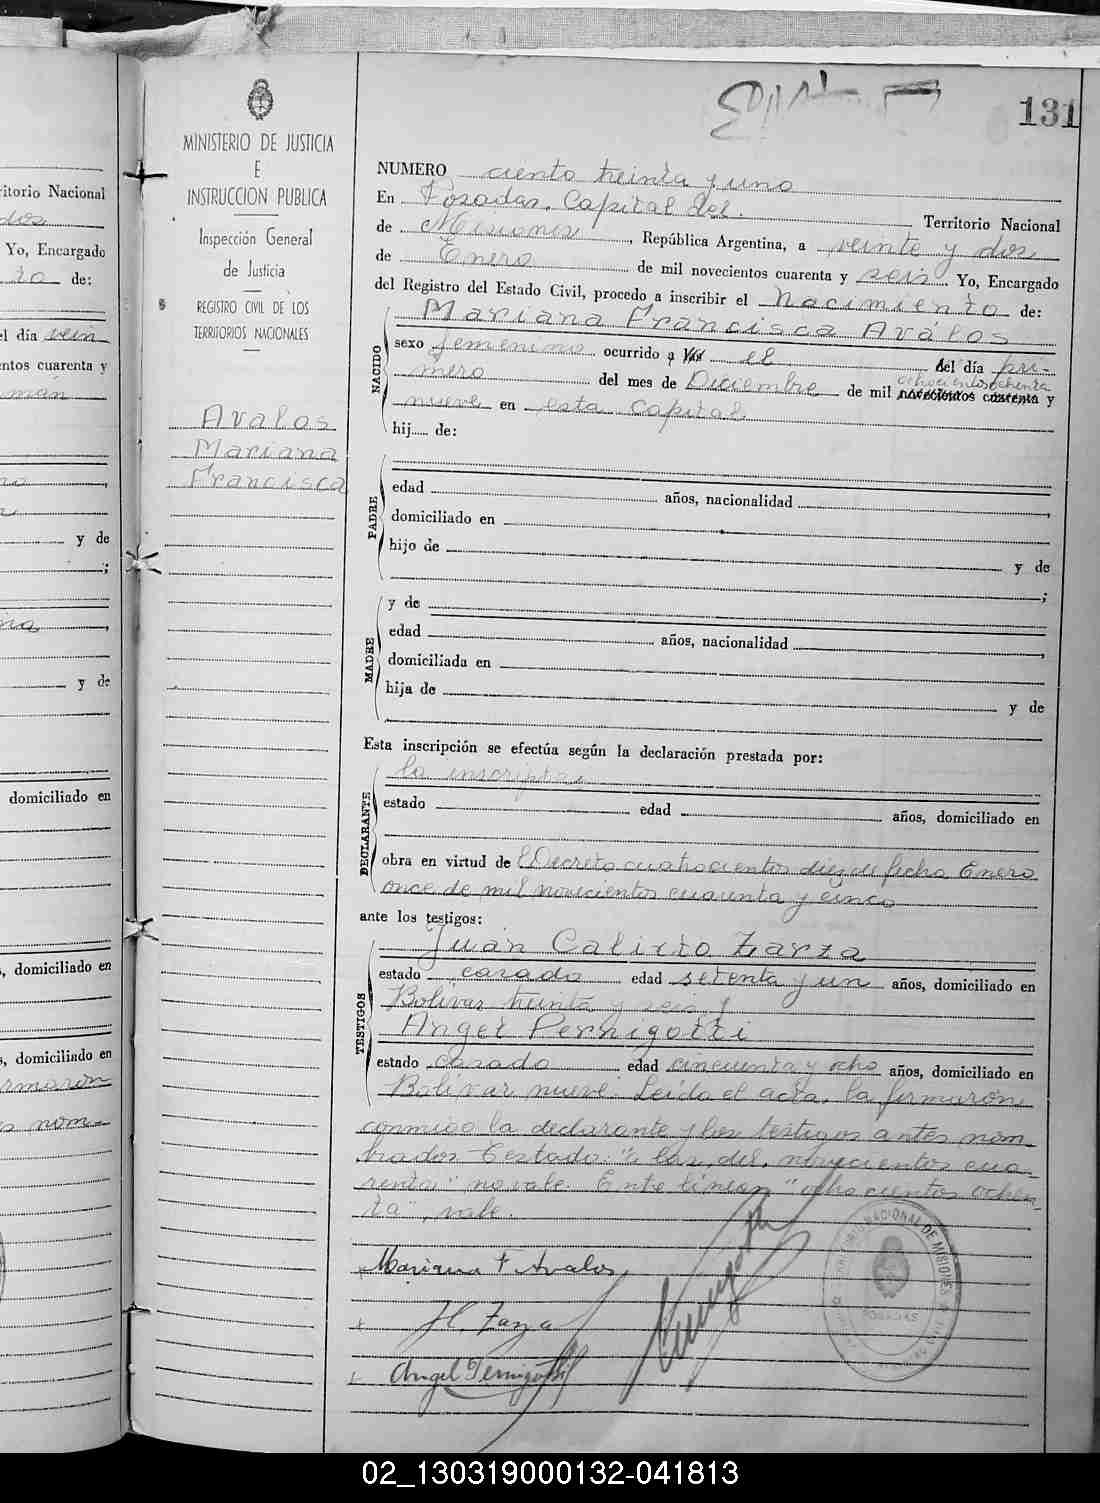 131
MINISTERIO DE JUSTICIA
E
INSTRUCCION PUBLICA
Inspección General
de Justicia
REGISTRO CIVIL DE LOS
TERRITORIOS NACIONALES
Avalos
Mariana
Francisca
NUMERO ciento treinta y uno
En Posadas, Capital del Territorio Nacional
de Misiones, República Argentina, a veinte y dos
de Enero de mil novecientos cuarenta y seis Yo, Encargado
del Registro del Estado Civil, procedo a inscribir el Nacimiento de:
Mariana Francisca Aválos
NACIDO
sexo femenino ocurrido a las el del día pri-
mero del mes de Diciembre de mil novecientos cuarenta y
ochocientos ochenta
nueve en esta capital
hij de:
PADRE
edad años, nacionalidad
domiciliado en
hijo de y de
;
MADRE
y de
edad años, nacionalidad ,
domiciliada en
hija de y de
Esta inscripción se efectúa según la declaración prestada por:
DECLARANTE
la inscripta
estado edad años, domiciliado en
obra en virtud de Decreto cuatrocientos diez de fecha Enero
once de mil novecientos cuarenta y cinco
ante los testigos:
TESTIGOS
Juan Calixto Zarza
estado casado edad setenta y un años, domiciliado en
Bolivar treinta y seis y
Angel Pernigotti
estado casado edad cincuenta y ocho años, domiciliado en
Bolivar nueve. Leida el acta, la firmaron
conmigo la declarante y los testigos antes nom-
brados. Testado: "a las, del, novecientos cua-
renta" no vale. Entre lineas "ochocientos ochen-
ta", vale.
Mariana F Avalos
Angel Pernigotti
NACIONAL DE MISIONES
POSADAS
ritorio Nacional
dos
Yo, Encargado
de:
el día vein
entos cuarenta y
y de
;
y de
domiciliado en
, domiciliado en
, domiciliado en
firmaron
nom-
02_130319000132-041813